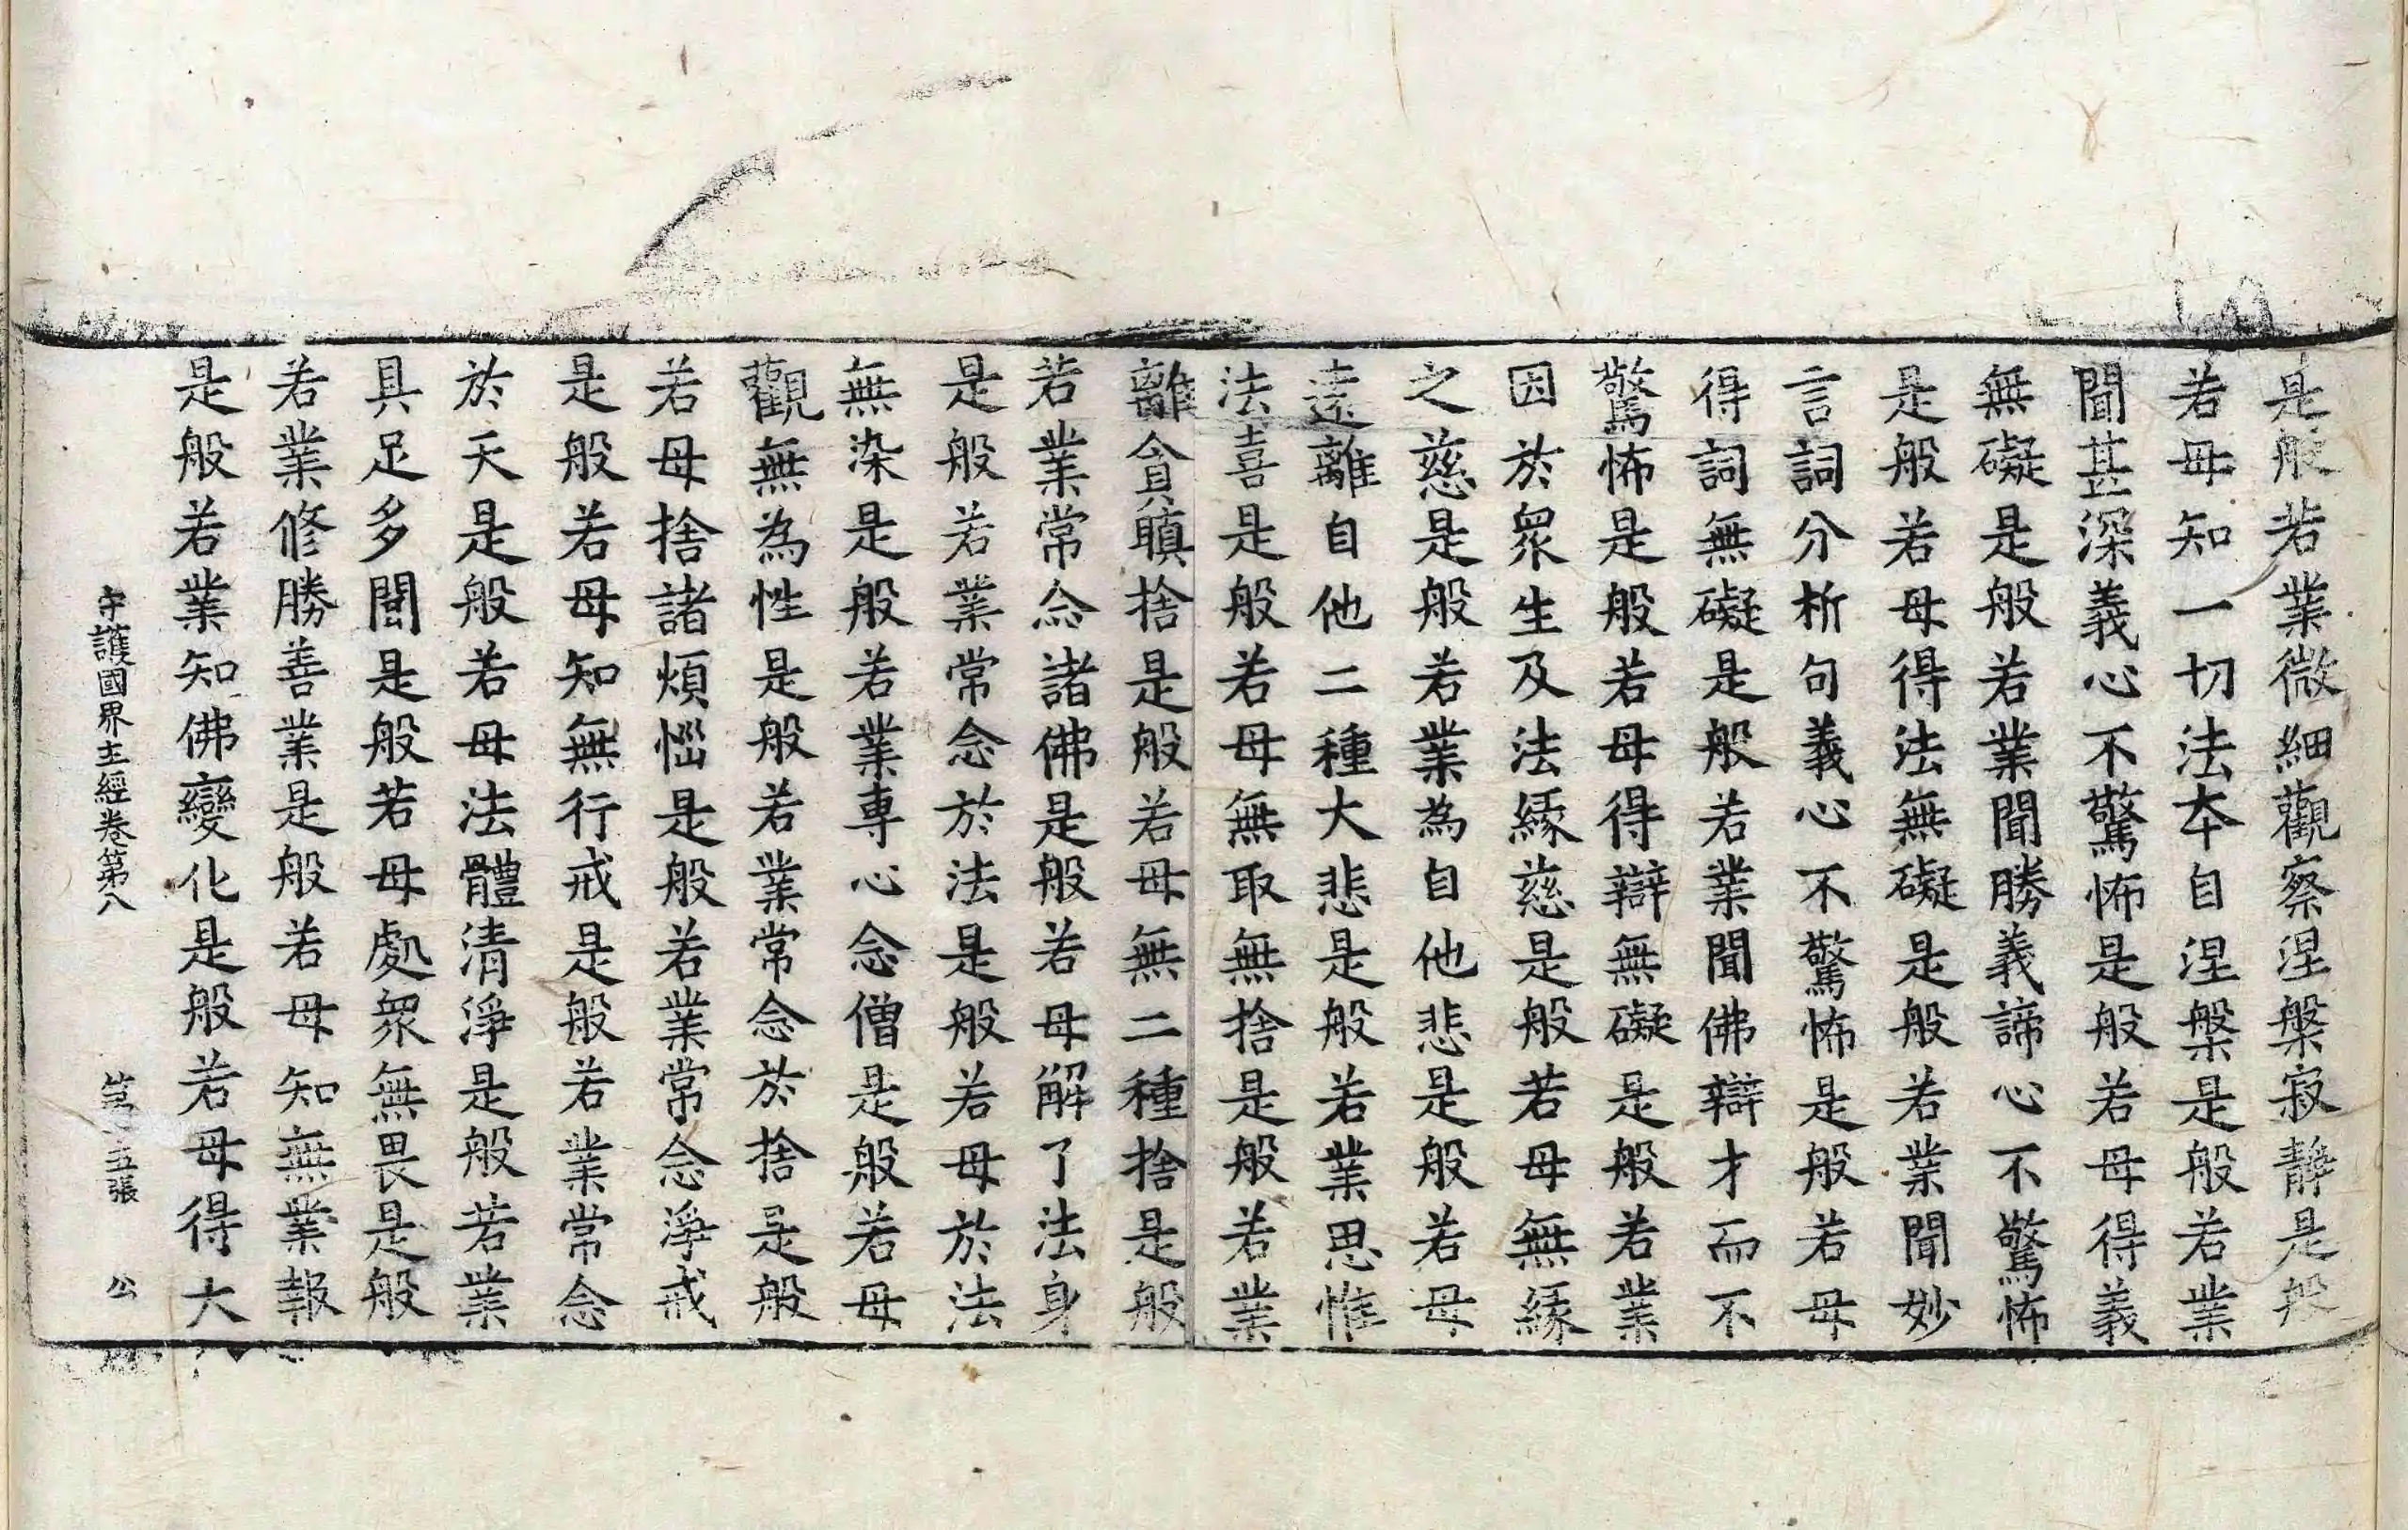 是般若業微細觀察涅槃寂靜是般
若母知一切法本自涅槃是般若業
聞甚深義心不驚怖是般若母得義
無礙是般若業聞勝義諦心不驚怖
是般若母得法無礙是般若業聞妙
言詞分析句義心不驚怖是般若母
得詞無礙是般若業聞佛辯才而不
驚怖是般若母得辯無礙是般若業
因於衆生及法緣慈是般若母無緣
之慈是般若業為自他悲是般若母
遠離自他二種大悲是般若業思惟
法喜是般若母無取無捨是般若業
離貪瞋捨是般若母無二種捨是般
若業常念諸佛是般若母解了法身
是般若業常念於法是般若母於法
無染是般若業專心念僧是般若母
觀無為性是般若業常念於捨是般
若母捨諸煩惱是般若業常念淨戒
是般若母知無行戒是般若業常念
於天是般若母法體清淨是般若業
具足多聞是般若母處衆無畏是般
若業修勝善業是般若母知無業報
是般若業知佛變化是般若母得大
守護國界主經卷第八 第五張 公